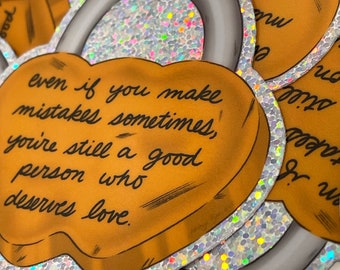 even if you make
mistakes sometimes,
you're still a good
person who
deserves love.